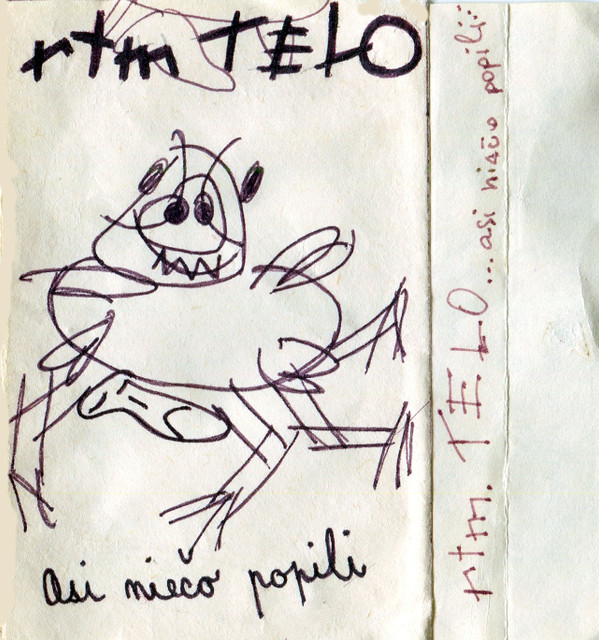 rtm TELO
asi niečo popili
rtm. TELO...asi niečo popili